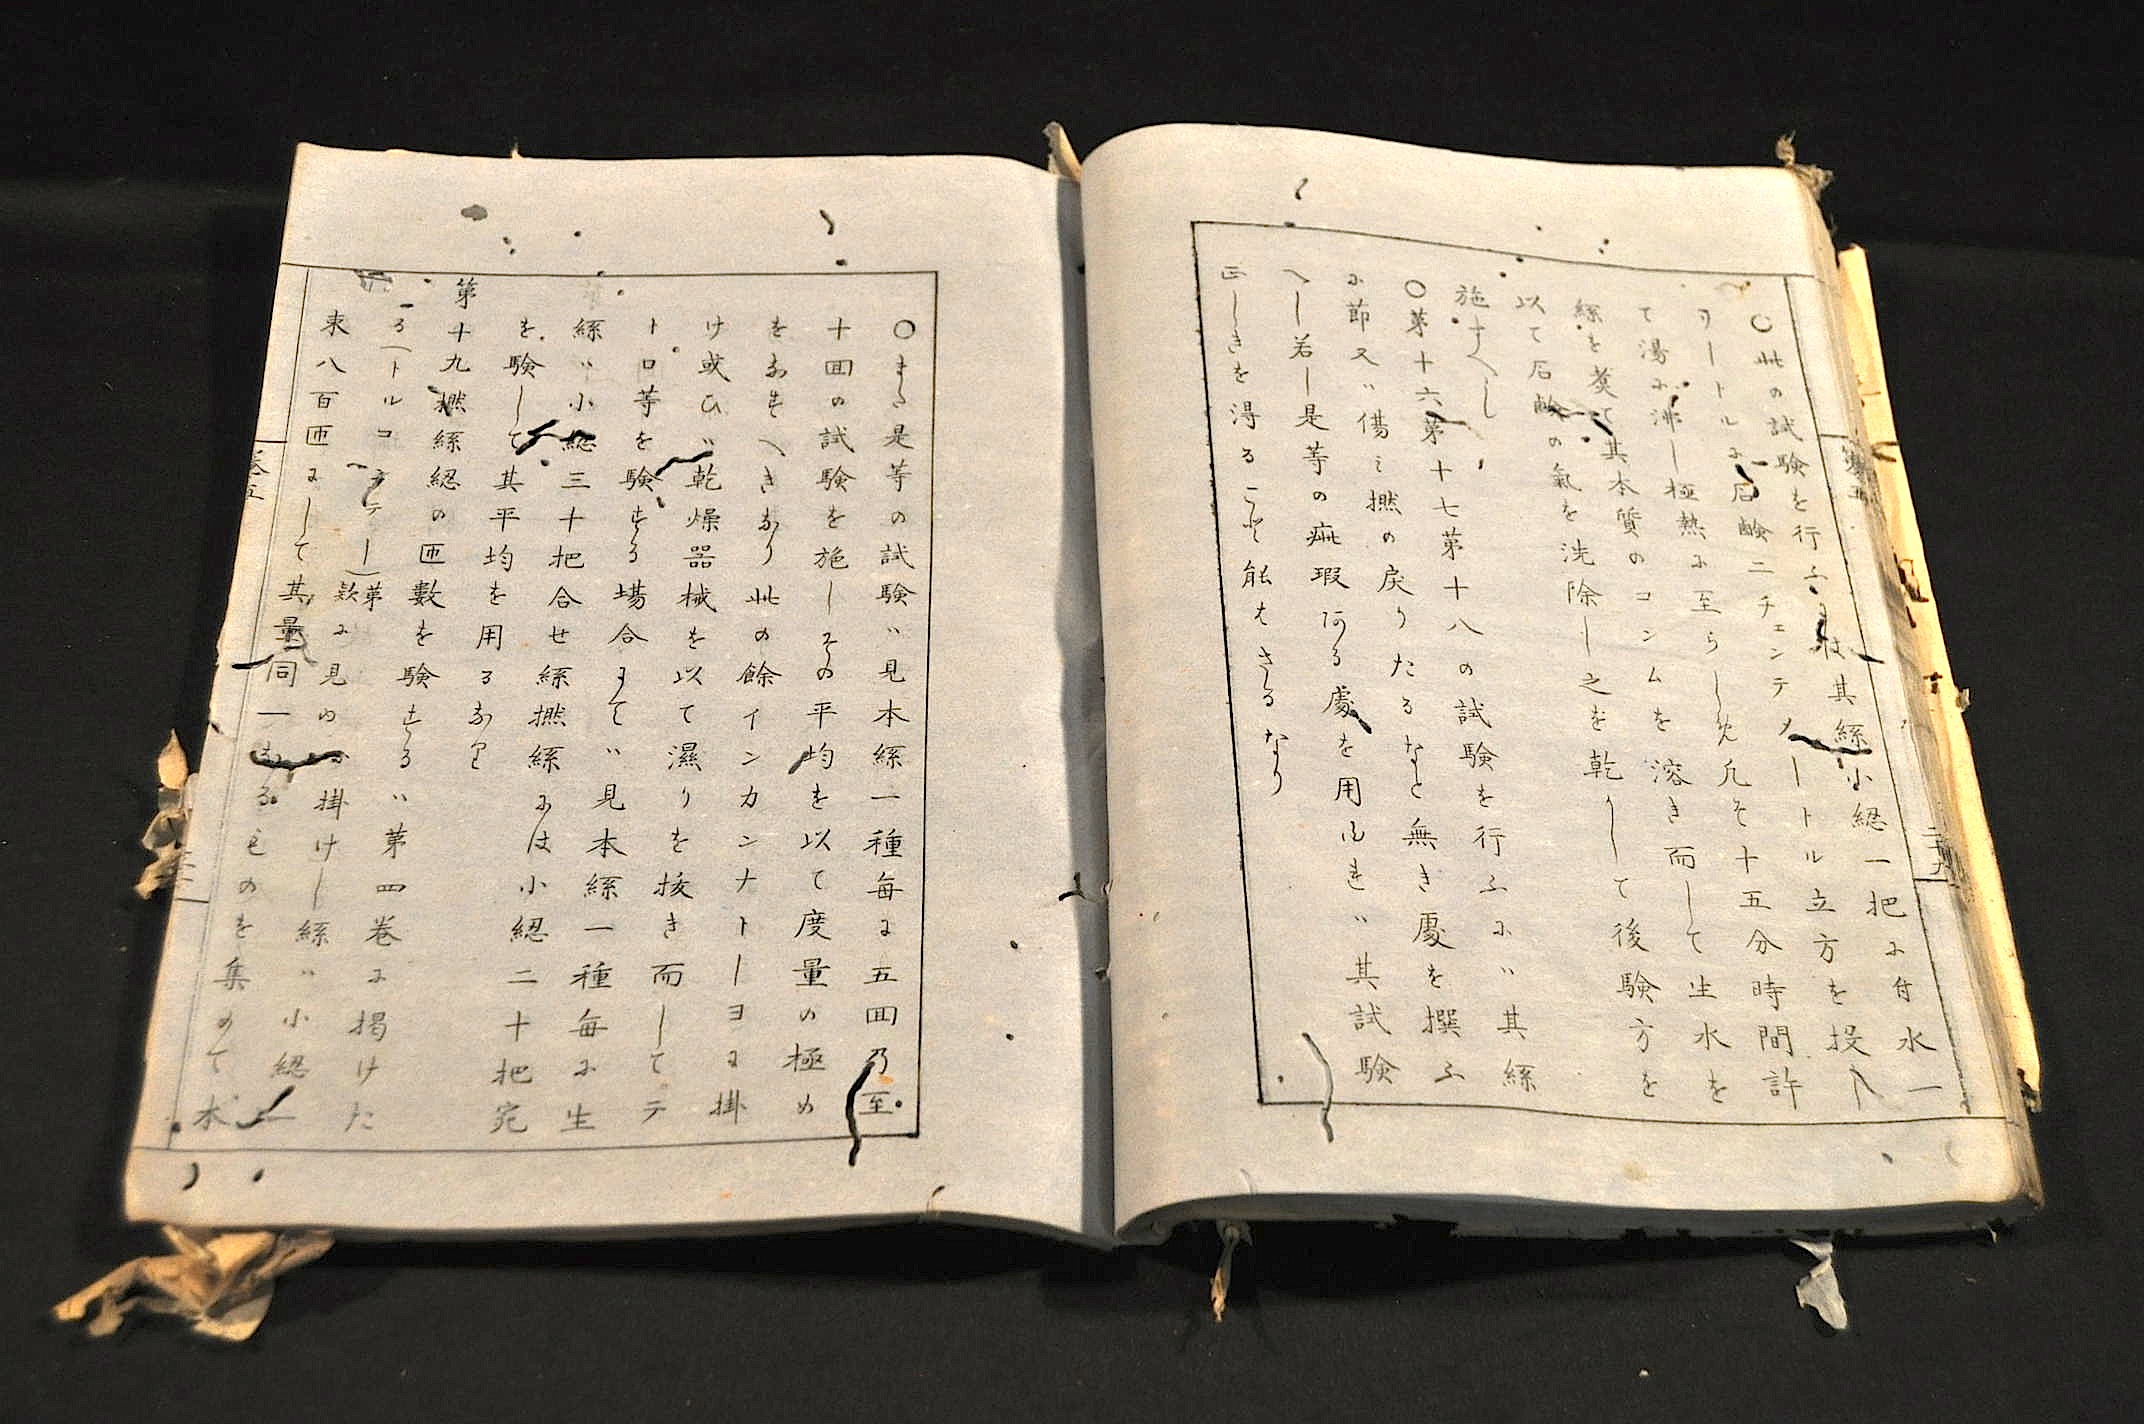 ○此の試験を行ふ 技其絲小緫一把に付水一
リートルに石鹸二チェンチメートル立方を投入
て湯に沸し極熱に至らしめ凡そ十五分時間許
絲を煑て其本質のコンムを溶き而して生水を
以て石鹸の氣を洗除し之を乾かして後験方を
施すへし
○第十六第十七第十八の試験を行ふには其絲
に節又は傷み撚の戻りたるなと無き處を撰ふ
へし若し是等の疵瑕ある處を用ゆれは其試験
正しきを得ること能はさるなり
○また是等の試験は見本絲一種每に五囬乃至
十囬の試験を施しその平均を以て度量の極め
をなすへきなり此の餘インカンナトーヨに掛
け或ひは乾燥器械を以て濕りを抜き而してテ
トロ等を験する塲合にては見本絲一種每に生
絲は小緫三十把合せ絲撚絲には小緫二十把宛
を験して其平均を用るなり
第十九撚絲緫の匝數を験するは第四卷に掲けた
る(トルコテー)第 款に見ゆ 掛けし絲は小緫一
束八百匝にして其量同一なるものを集めて本
卷五
二十九